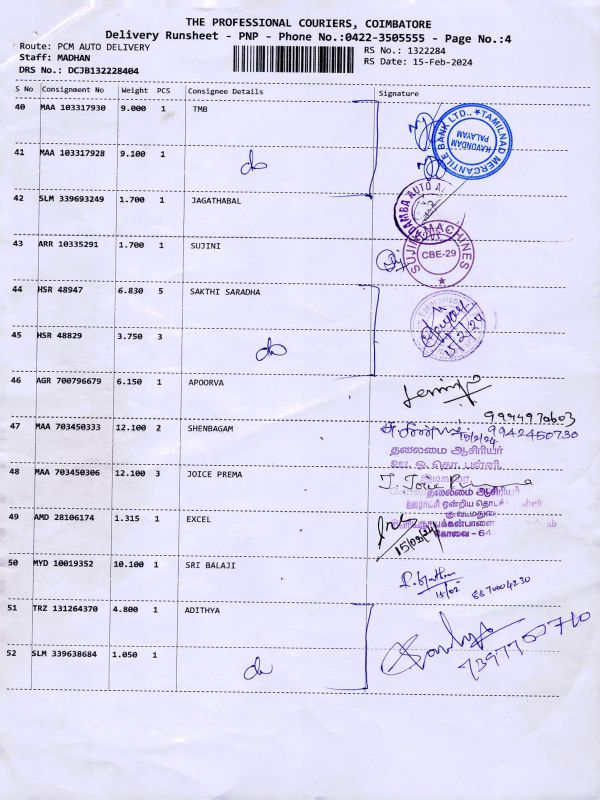 THE PROFESSIONAL COURIERS, COIMBATORE
Delivery Runsheet - PNP - Phone No.:0422-3505555 - Page No.:4
Route: PCM AUTO DELIVERY
RS No.: 1322284
Staff: MADHAN
RS Date: 15-Feb-2024
DRS No.: DCJB132228404
S No Consignment No Weight PCS Consignee Details Signature
40 MAA 103317930 9.000 1 TMB
TAMILNAD MERCANTILE BANK LTD.,
KAVUNDAM
PALAYAM
41 MAA 103317928 9.100 1
do
42 SLM 339693249 1.700 1 JAGATHABAL
43 ARR 10335291 1.700 1 SUJINI
SUJINI MACHINES
CBE-29
44 HSR 48947 6.830 5 SAKTHI SARADHA
15/2/24
45 HSR 48829 3.750 3
do
46 AGR 700796679 6.150 1 APOORVA
9994970603
47 MAA 703450333 12.100 2 SHENBAGAM
15/2/24 9942450730
தலைமை ஆசிரியர்
48 MAA 703450306 12.100 3 JOICE PREMA
தலைமை ஆசிரியர்
கோவை - 64
49 AMD 28106174 1.315 1 EXCEL
15/02/24
50 MYD 10019352 10.100 1 SRI BALAJI
15/02 8870004230
51 TRZ 131264370 4.800 1 ADITHYA
52 SLM 339638684 1.050 1
do